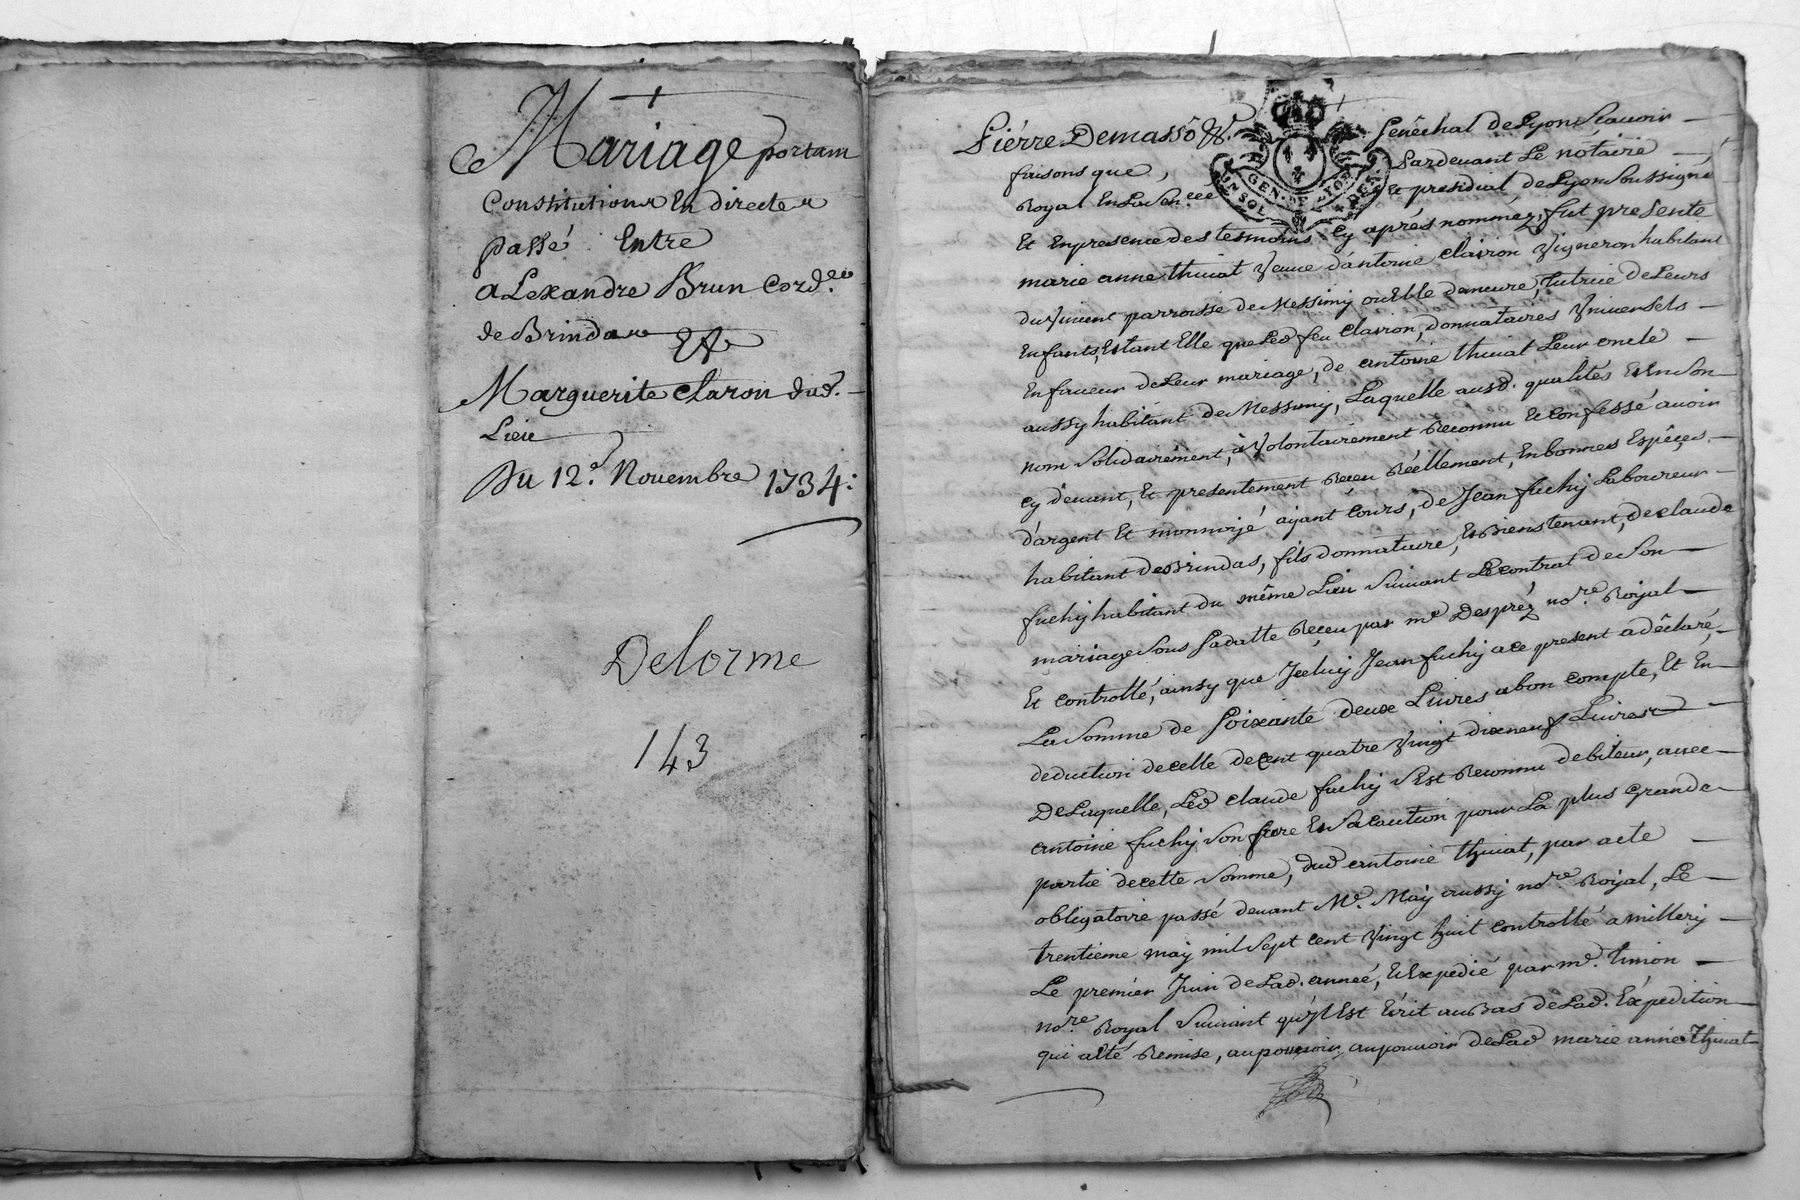 Mariage portam
Constitution En directe
passé Entre
aLexandre Brun Cord.er
de Brindas Et
Marguerite Claron dud.
Lieu
Du 12.e Novembre 1734:
Delorme
143
Pierre Demasso &. Senêchal de Lyon Scavoir
faisons que, Pardevant Le nótaire
Royal En La Sen.cee Et presidial de Lyon Soussigné
Et En presence des tesmoins Cy aprés nommèz, fut presente
marie anne thivat Veuve d'antoine Clairon Vigneron habitant
du Vivent parroisse de Messimy ou Elle demeure, tutrice de Leurs
Enfants, Estant Elle que Led feu Clairon, donnataires Vniversels
En faveur de Leur mariage, de antoine thivat Leur oncle
aussy habitant de Messimy, Laquelle ausd. qualités Et En Son
nom Solidairement, à Volontairement Reconnu Et Confessé avoir
Cy devant, Et presentement Receu Réellement, En bonnes Espêces
d'argent Et monnoijé aijant Cours, de Jean fuchij Laboureur
habitant de Brindas, fils donnataire, Et Biens tenant, de Claude
fuchij habitant du même Lieu Suivant Le Contrat de Son
mariage Sous Sa datte Reçeu par m.e Desprèz no.re Roijal
Et Controllé, ainsy que Jcelluij Jean fuchij a ce present a dêclaré,
La Somme de Soixante deux Livres a bon Compte, Et En
deduction de Celle de Cent quatre Vingt dixneuf Livres
De Laquelle, Led Claude fuchij S'Est Reconnu debiteur, avec
antoine fuchij Son frere Et Sa Caution pour La plus Grande
partie de Cette Somme, dud antoine thivat, par acte
obligatoire passé devant M.e Maij aussij no.re Roijal, Le
trentieme maij mil Sept Cent Vingt huit Controllé a millerij
Le premiér Juin de Lad. année, Et Expedié par m.e Simon
no.re Royal Suivant qu'jl Est Ecrit au Bas de Lad. Expedition
qui a Eté Remise, au pouvoir, au pouvoir de Lad marie anne Thivat